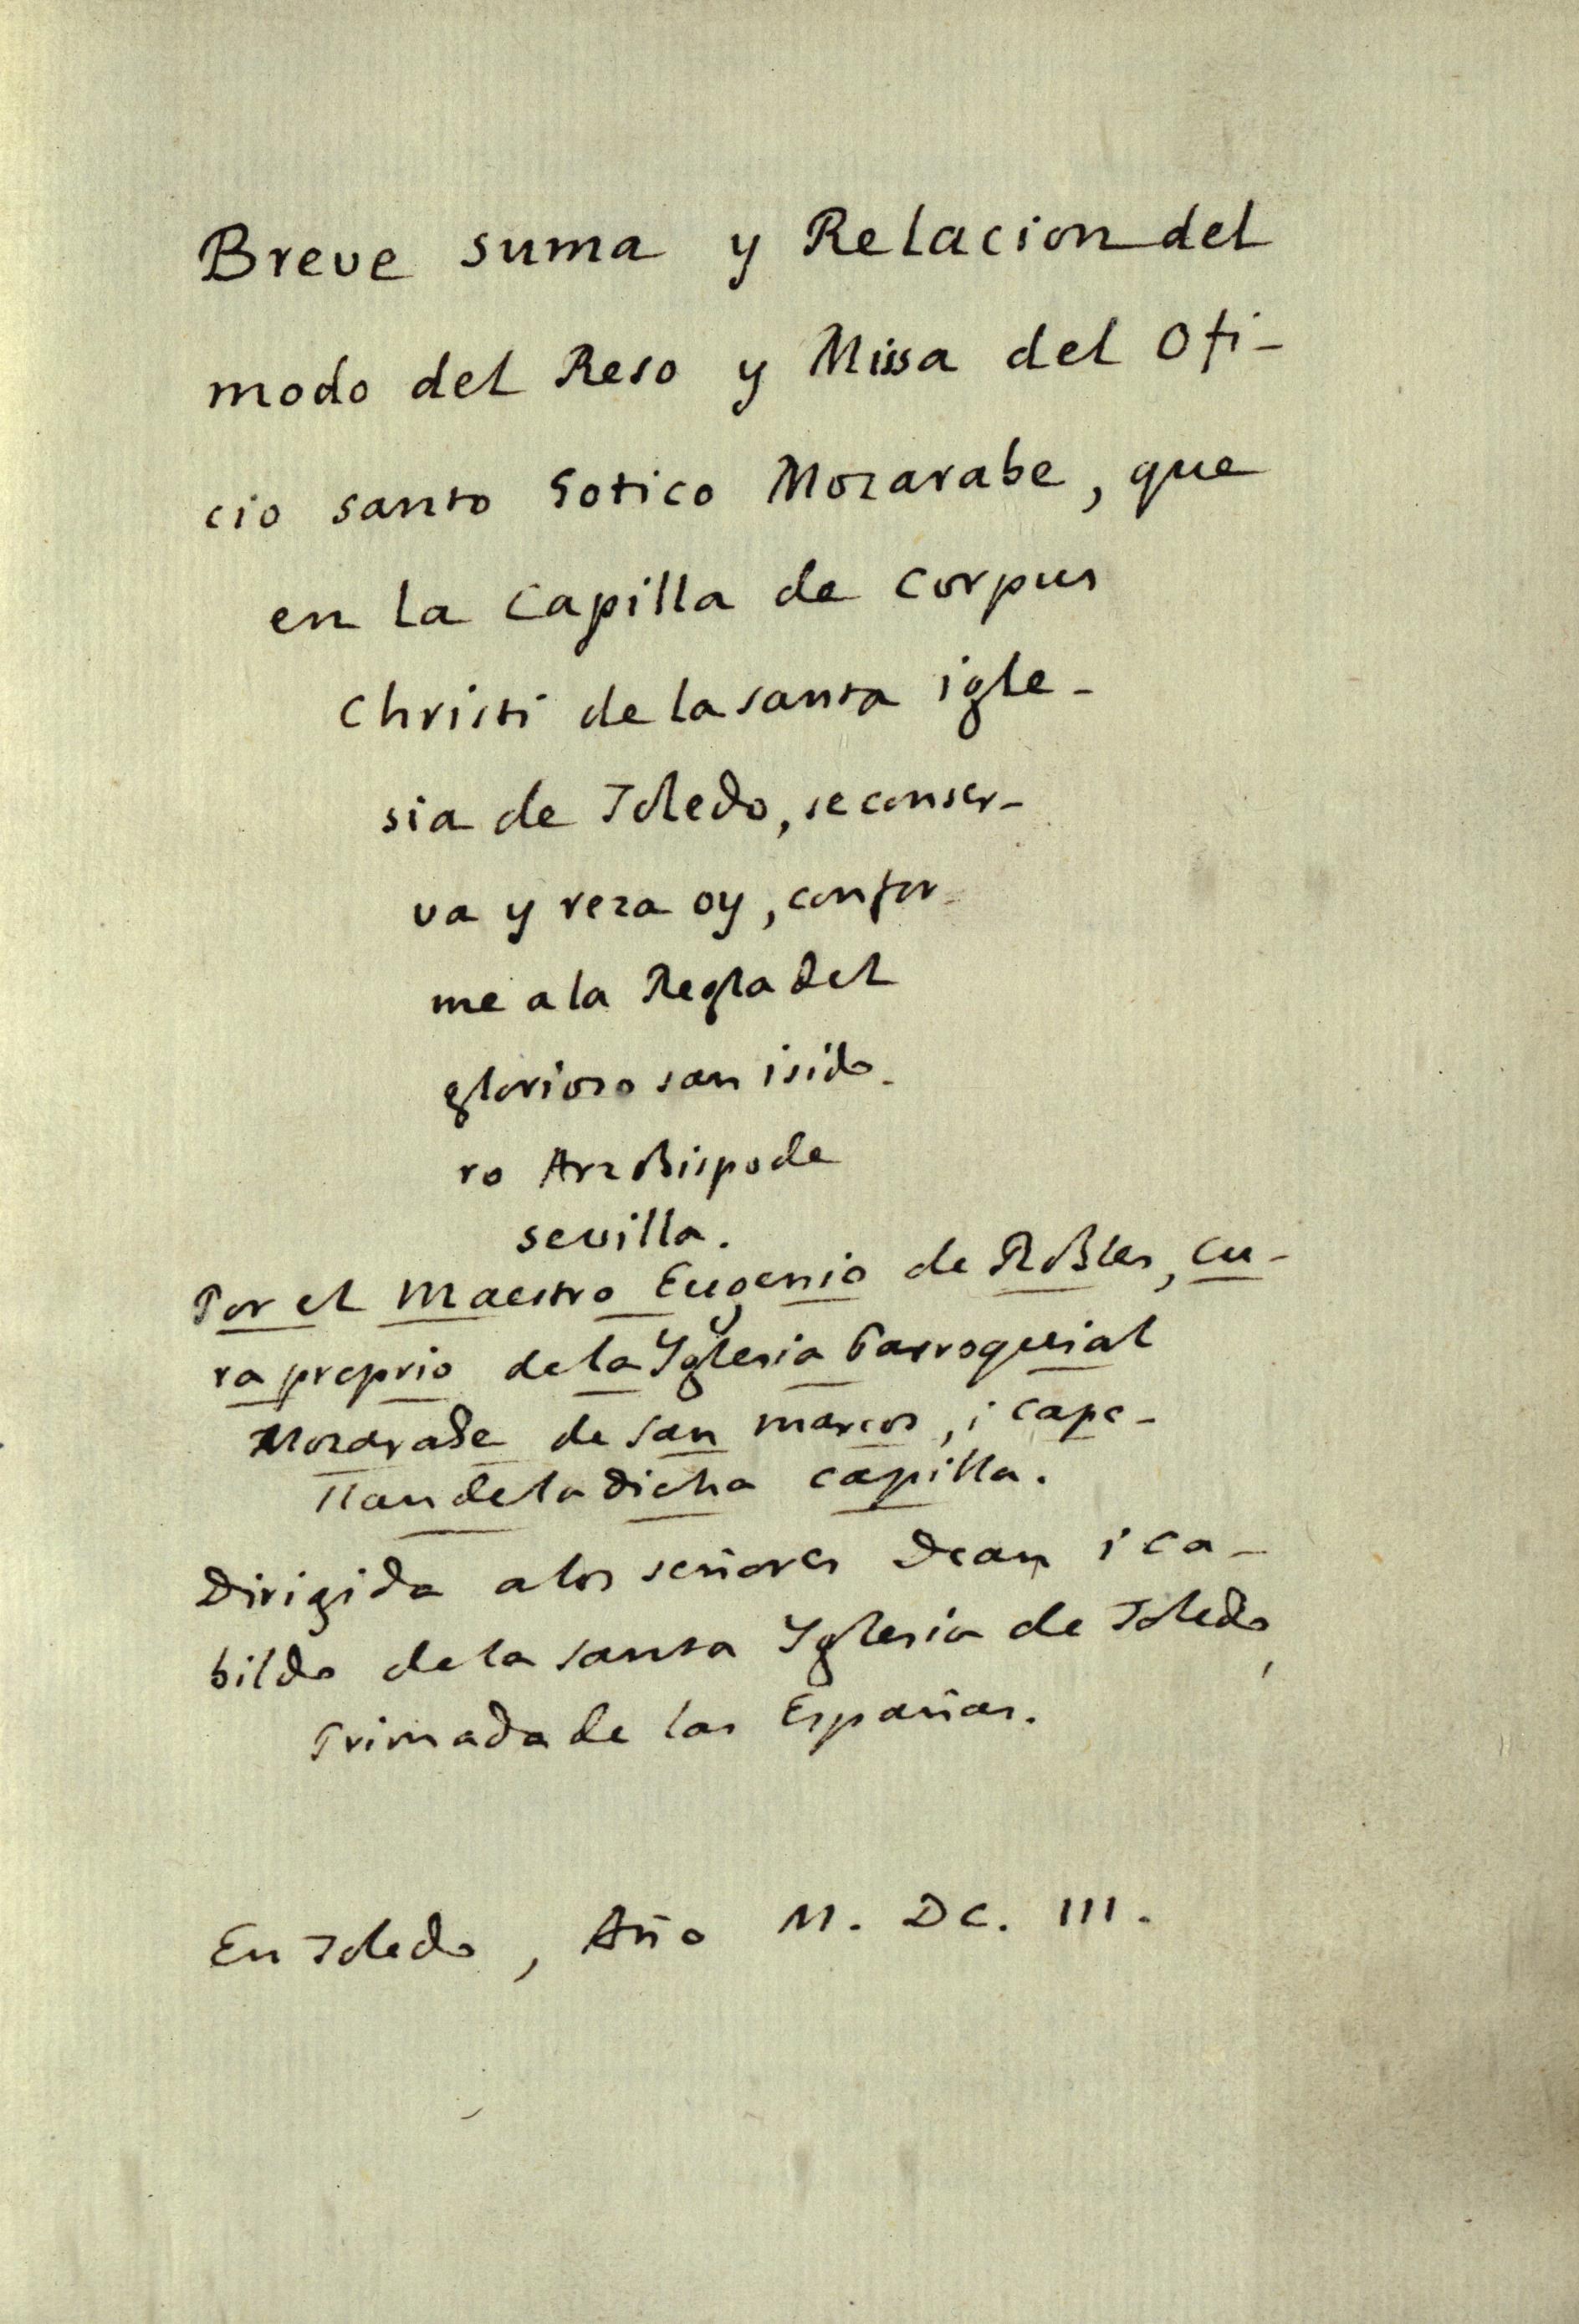 Breve suma y Relacion del
modo del Reso y Missa del Ofi-
cio santo Gotico Mozarabe, que
en la Capilla de Corpus
Christi de la santa igle-
sia de Toledo, se conser-
va y reza oy, confor-
me a la Regla del
glorioso san isido-
ro Arzobispo de
sevilla.
Por el Maestro Eugenio de Robles, cu-
ra proprio de la Yglesia Parroquial
Mozarabe de san marcos, i cape-
llan de la dicha capilla.
Dirigida a los señores Dean i ca-
bildo de la santa Yglesia de Toledo,
Primada de las Españas.
En Toledo, Año M. DC. III.